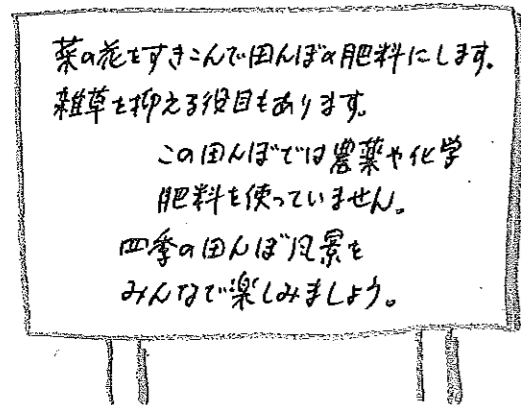 菜の花をすきこんで田んぼの肥料にします。
雑草を抑える役目もあります。
この田んぼでは農薬や化学
肥料を使っていません。
四季の田んぼ風景を
みんなで楽しみましょう。